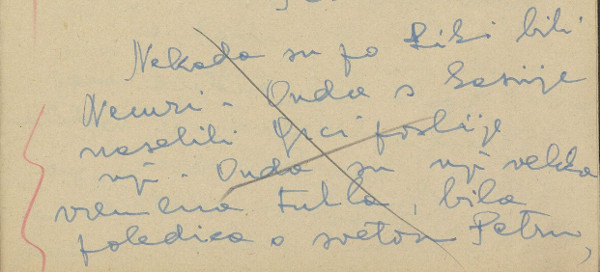 Nekada su po Liki bili
Nemri. Onda s kasnije
naselili Grci poslije
nji. Onda su nji velka
vremena tukla, bila
poledica o svetom Petru,